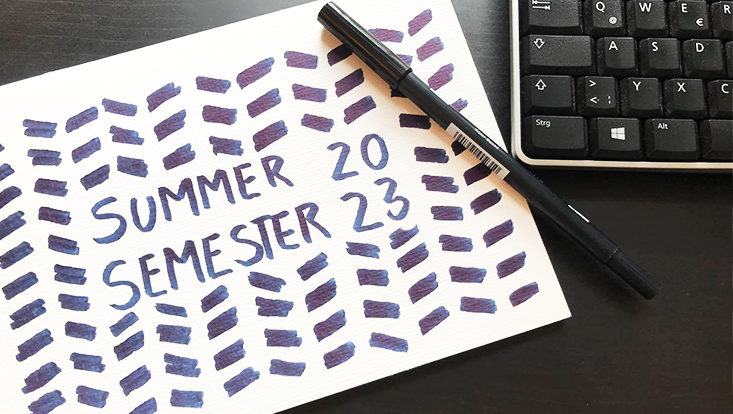 SUMMER 20
SEMESTER 23
Q @ W E € R
A S D
> < Y X C
Strg Alt